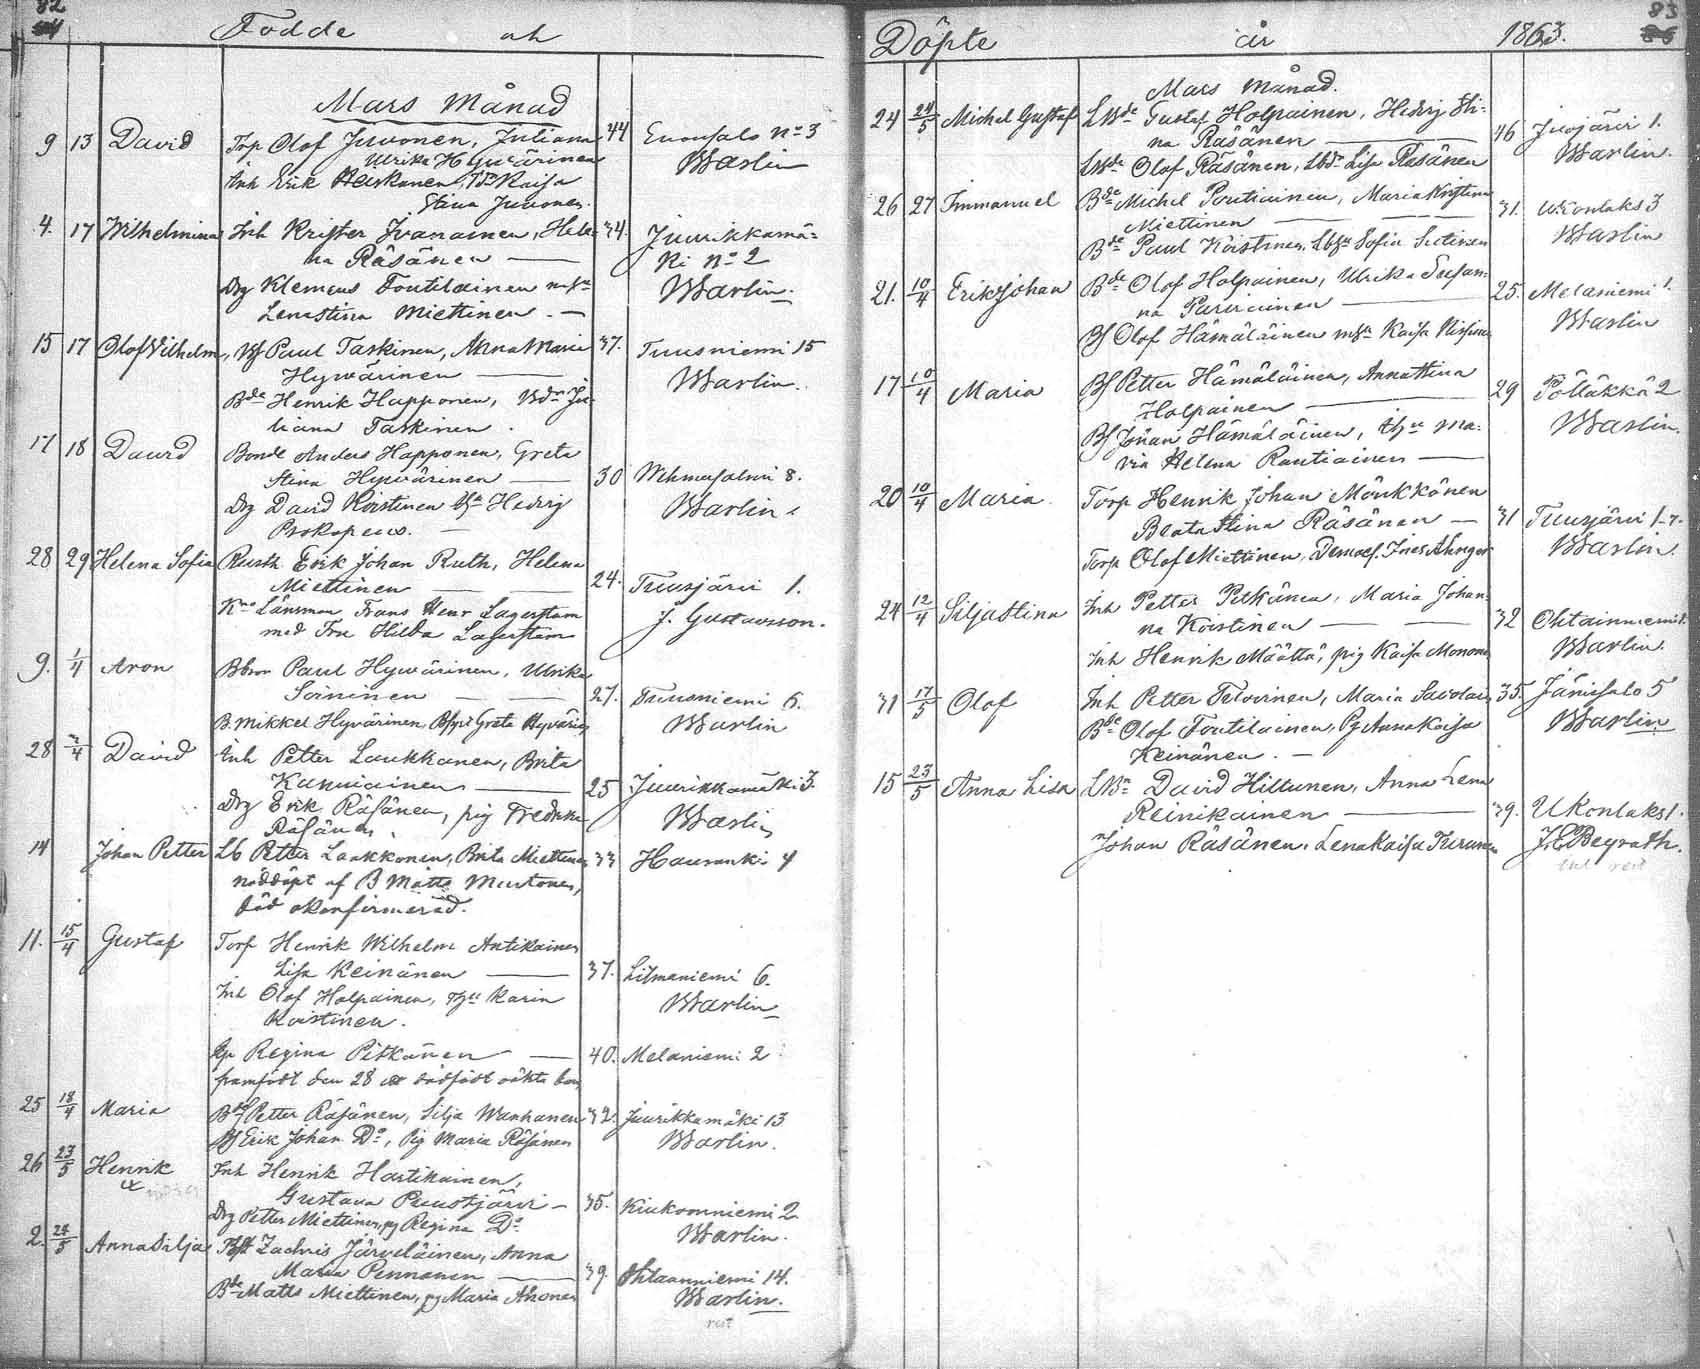 82
Födde och
Mars Månad
9 13 David Torp Olof Juvonen, Juliana 44 Enonsalo No 3
Ulrika Hyvärinen Warlin
Inh Erik Heiskanen, Kaisa
Stina Juvonen.
4. 17 Wilhelmina Inh Krister Ivanainen, Hele- 34. Juurikkamä-
na Räsänen — ki No 2
Drg Klemens Toutilainen Warlin.
Lenastina Miettinen. —
15 17 Olof Vilhelm, Paul Taskinen, Anna Maria 37. Tuusniemi 15
Hyvärinen — Warlin.
Bde Henrik Happonen, Ju-
liana Taskinen.
17 18 David Bonde Anders Happonen, Greta
Stina Hyvärinen — 30 Wehmasalmi 8.
Drg David Koistinen Hedvig Warlin
Prokopeus. —
28 29 Helena Sofia Rusth Erik Johan Ruth, Helena
Miettinen — 24. Tuusjärvi 1.
Länsman Frans Henr Lagerstam J. Gustavsson.
med Fru Hilda Lagerstam
9. 1/4 Aron Paul Hyvärinen, Ulrika
Soininen — 27. Tuusniemi 6.
B. Mikkel Hyvärinen, Greta Hyvärin Warlin
28 David Inh Petter Laukkanen, Brita
Kanniainen — 25 Juurikkamäki 3.
Drg Erik Räsänen, pig Fredrika Warlin
Räsänen.
14 Johan Petter Lb Petter Laakkonen, Brita Miettinen 33 Hauranki 4
nöddöpt af B Matts Mustonen,
död okonfirmerad.
11. 15/4 Gustaf Torp Henrik Wilhelm Antikainen
Lisa Keinänen — 37. Litmaniemi 6.
Inh Olof Holpainen, Karin Warlin
Koistinen.
Regina Pitkänen — 40. Melaniemi 2
framfödt den 28 dödfödt oäkta barn
25 18/4 Maria Petter Räsänen, Silja Wanhanen 32. Juurikkamäki 13
Bf Erik Johan Do, Pig Maria Räsänen Warlin.
26 23/5 Henrik Inh Henrik Hartikainen,
Gustava Puustjärvi — 35. Kiukoonniemi 2
Drg Petter Miettinen, pg Regina Do Warlin.
2. 24/5 Anna Silja Zachris Järveläinen, Anna
Maria Pennanen — 39. Ohtaanniemi 14.
Bde Matts Miettinen, pg Maria Ahonen Warlin.
83
Döpte år 1863.
Mars Månad.
24 24/5 Michel Gustaf Gustaf Holpainen, Hedvig Sti-
na Räsänen — 46 Juojärvi 1.
Olof Räsänen, Lisa Räsänen Warlin.
26 27 Immanuel Bde Michel Poutiainen, Maria Kristina
Miettinen — 31. U.Kontaks 3
Bde Paul Koistinen, Sofia Sutinen Warlin
21. 10/4 Erik Johan Bde Olof Holpainen, Ulrika Susan-
na Parviainen — 25. Melaniemi 1.
Bf Olof Hämäläinen Kaisa Nissinen Warlin
17 10/4 Maria Bf Petter Hämäläinen, Anna Stina
Holpainen — 29 Pölläkkä 2
Bf Johan Hämäläinen, Ma- Warlin.
ria Helena Rautiainen —
20 10/4 Maria Torp Henrik Johan Mönkkönen
Beata Stina Räsänen — 31 Tuusjärvi 1-7.
Torp Olof Miettinen, Ines Ahnger Warlin.
24 12/4 Silja Stina Inh Petter Pitkänen, Maria Johan-
na Koistinen — 32 Ohtainniemi 1.
Inh Henrik Määttä, pig Kaisa Mononen Warlin.
31 17/5 Olof Inh Petter Maria Savolain 35. Jänisalo 5
Bde Olof Toutilainen, Pg Anna Kaisa Warlin
Keinänen. —
15 23/5 Anna Lisa David Hiltunen, Anna Lena
Reinikainen — 39. U Kontaks 1.
Johan Räsänen, Lena Kaisa Turunen